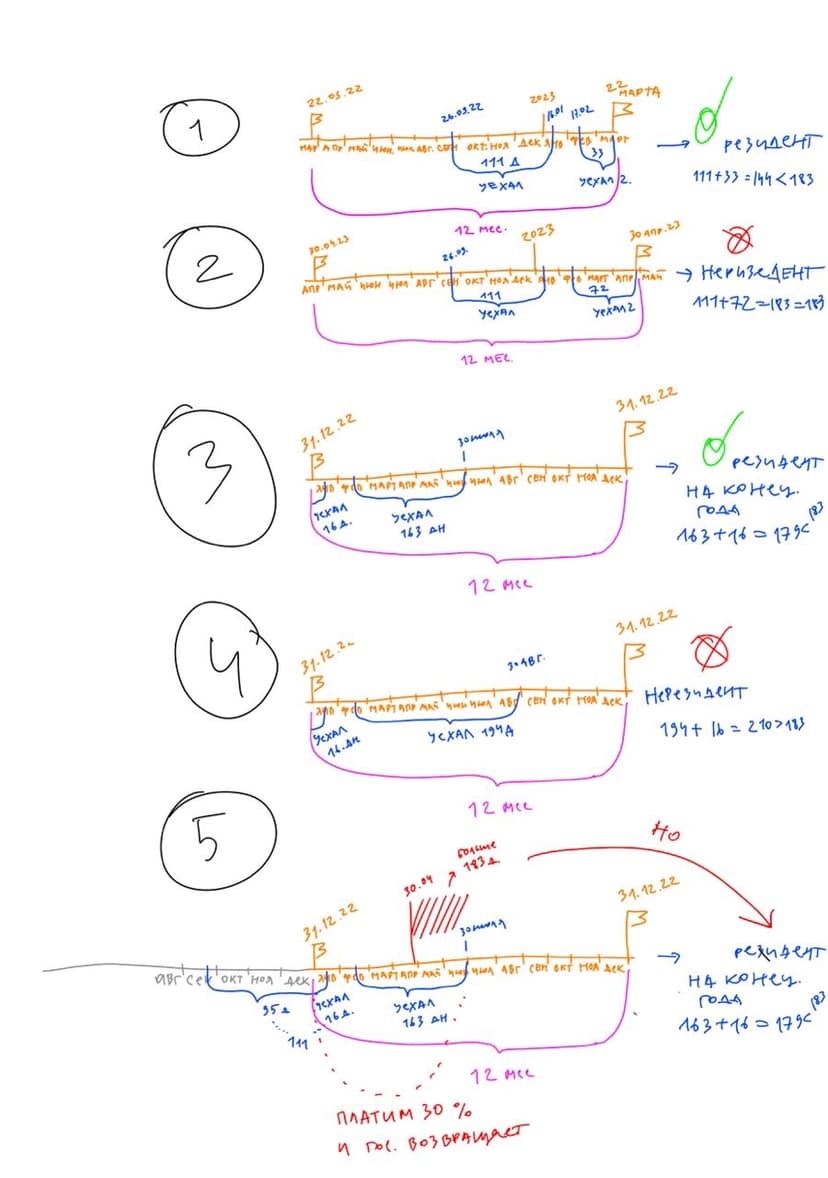 1
22.03.22
26.09.22
2023
16.01
17.02
22 МАРТА
МАР АПР МАЙ ИЮН ИЮЛ АВГ. СЕН ОКТ. НОЯ ДЕК ЯНВ ФЕВ МАРТ
111 Д
33
УЕХАЛ
УЕХАЛ 2.
12 МЕС.
→ РЕЗИДЕНТ
111+33=144<183
2
30.04.23
26.09.
2023
30 АПР.23
АПР МАЙ ИЮН ИЮЛ АВГ СЕН ОКТ НОЯ ДЕК ЯНВ ФЕВ МАРТ АПР МАЙ
111
72
УЕХАЛ
УЕХАЛ 2
12 МЕС.
→ НЕРИЗЕДЕНТ
111+72=183=183
3
31.12.22
30 июня
31.12.22
ЯНВ ФЕВ МАРТ АПР МАЙ ИЮН ИЮЛ АВГ СЕН ОКТ НОЯ ДЕК
УЕХАЛ
16 Д.
УЕХАЛ
163 ДН
12 МЕС
→ РЕЗИДЕНТ
НА КОНЕЦ.
ГОДА
163+16=179<183
4
31.12.2
30 АВГ.
31.12.22
ЯНВ ФЕВ МАРТ АПР МАЙ ИЮН ИЮЛ АВГ СЕН ОКТ НОЯ ДЕК
УЕХАЛ
16 ДН
УЕХАЛ 194Д
12 МЕС
НЕРЕЗИДЕНТ
194+16=210>183
5
НО
30.04
больше
183 Д.
31.12.22
30 июня
31.12.22
АВГ СЕН ОКТ НОЯ ДЕК ЯНВ ФЕВ МАРТ АПР МАЙ ИЮН ИЮЛ АВГ СЕН ОКТ НОЯ ДЕК
95 Д
111
УЕХАЛ
16 Д.
УЕХАЛ
163 ДН.
12 МЕС
→ РЕЗИДЕНТ
НА КОНЕЦ.
ГОДА
163+16=179<183
ПЛАТИМ 30 %
И ГОС. ВОЗВРАЩАЕТ